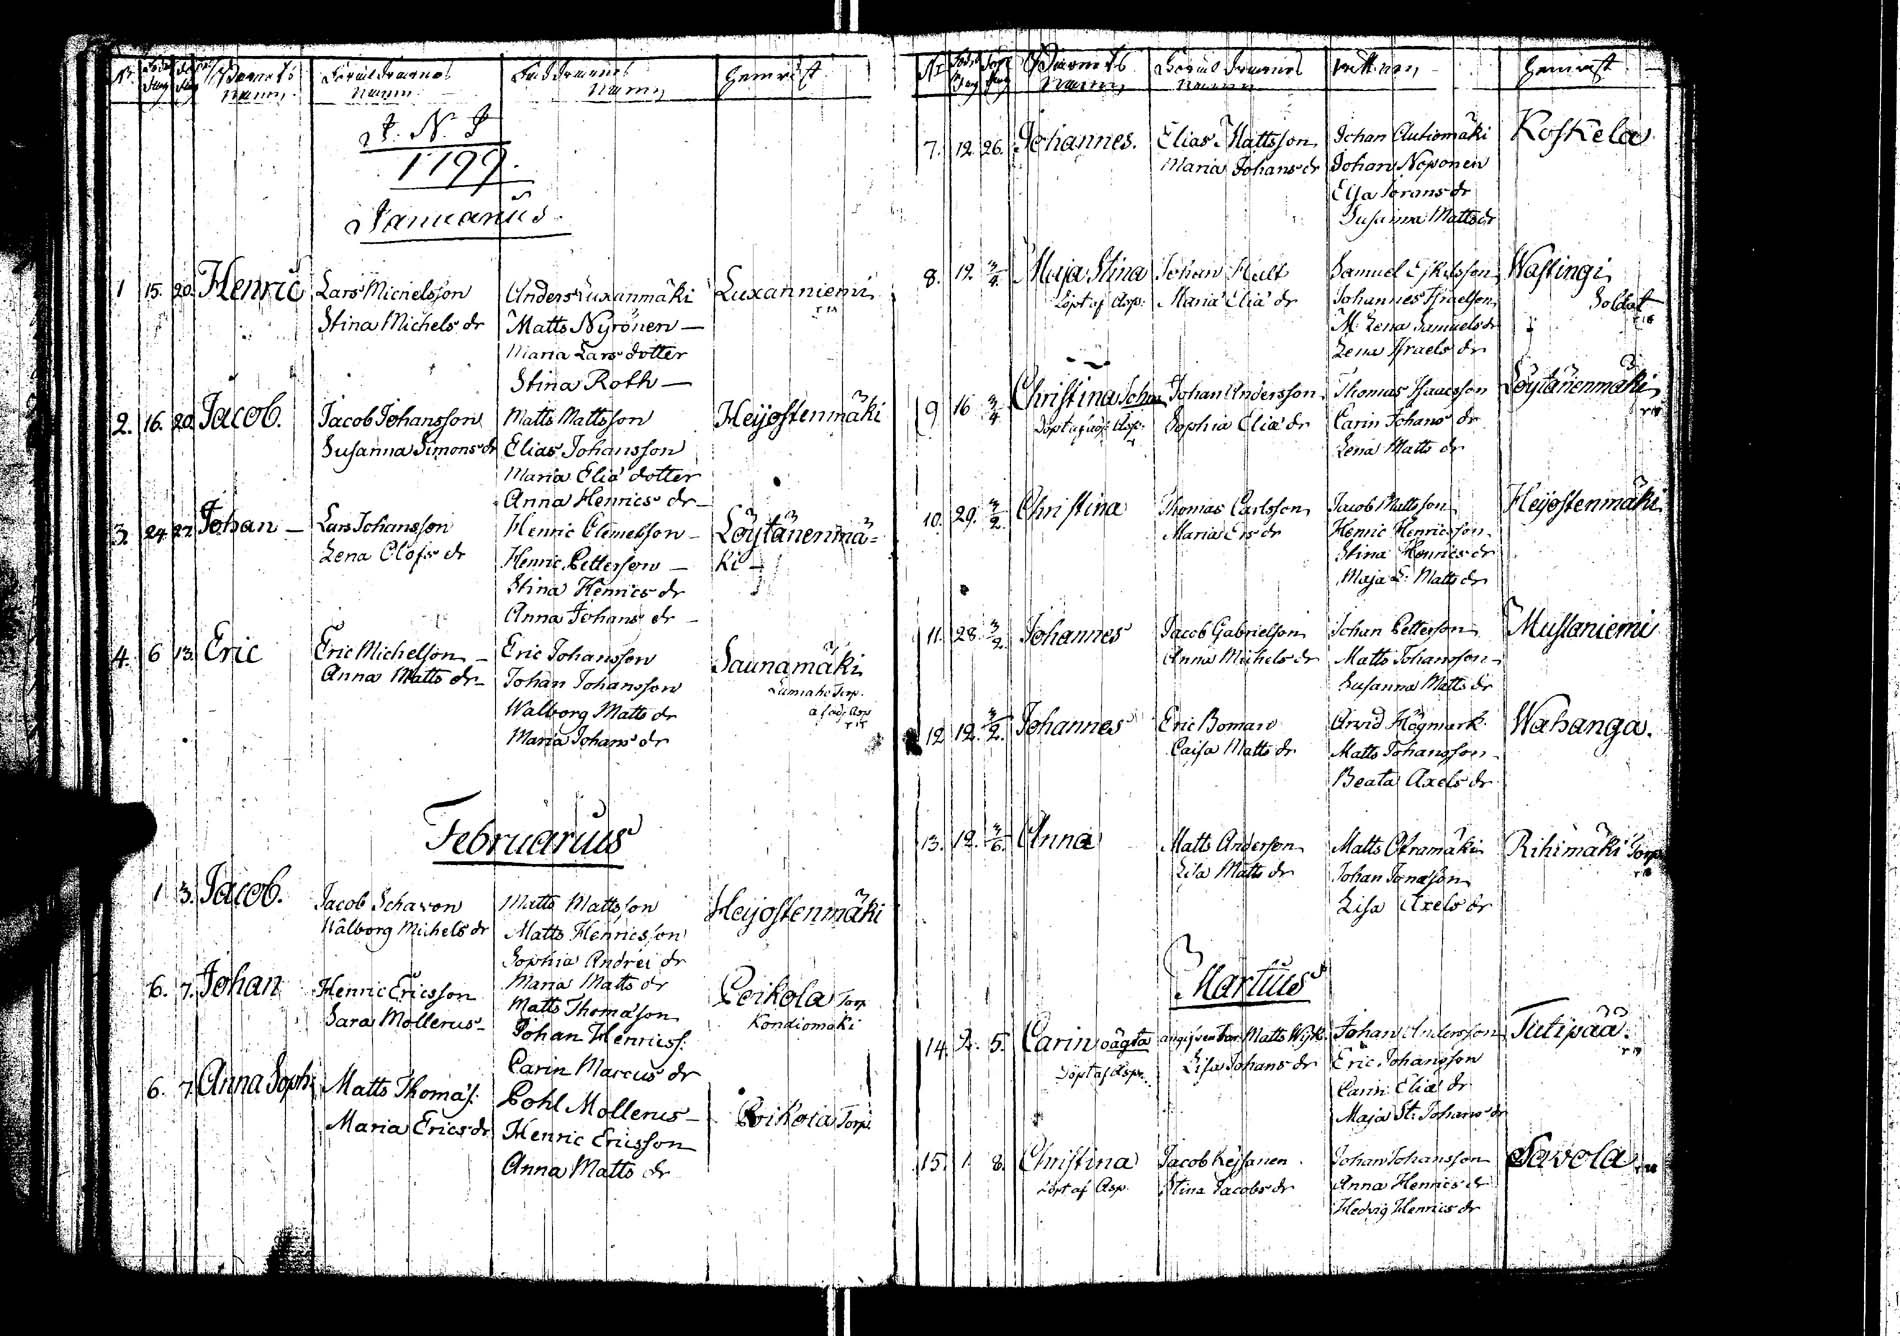 Nr Barnets namn Föräldrarnas namn Faddrarnes namn Hemvist
J. N. J
1799.
Januarius.
1 15. 20. Henric Lars Michelsson Anders Luxanmäki Luxanniemi
Stina Michels dr Matts Nyrönen —
Maria Lars dotter
Stina Roth —
2. 16. 20. Jacob. Jacob Johansson Matts Mattsson Heijostenmäki
Susanna Simons dr Elias Johansson
Maria Eliæ dotter
Anna Henrics dr —
3. 24. 27. Johan — Lars Johansson Henric Clemetsson — Löytänenmä=
Lena Olofs dr Henric Pettersson — ki —
Stina Henrics dr
Anna Johans dr —
4. 6 13. Eric Eric Michelsson — Eric Johansson Saunamäki
Anna Matts dr — Johan Johansson
Walborg Matts dr
Maria Johans dr
Februarius
1 3. Jacob. Jacob Schavon Matts Mattsson Heijostenmäki
Walborg Michels dr Matts Henricsson
Sophia Andrei dr
Maria Matts dr
6. 7. Johan Henric Ericsson Matts Thomasson Poikola Torp
Sara Mollerus — Johan Henricss. Kondiomäki
Carin Marcus dr
6. 7. Anna Soph. Matts Thomass. Pohl Mollerus — Poikola Torp.
Maria Erics dr Henric Ericsson
Anna Matts dr
Nr Barnets namn Föräldrarnes namn Vittnen Hemvist
7. 12. 26. Johannes. Elias Mattsson Johan Autiomäki Koskela
Maria Johans dr Johan Noponen
Elsa Jörans dr
Susanna Matts dr
8. 12 3/4 Maja Stina Johan Hult Samuel Eskilsson Wastingi
Döpt af Asp. Maria Eliæ dr Johannes Israelsson Soldat
M: Lena Samuels dr
Lena Israels dr
9 16 3/4 Christina Johan Andersson Thomas Isaacsson Löytänenmäki
Sophia Eliæ dr Carin Johans dr
Lena Matts dr
10. 29. 3/2. Christina Thomas Carlsson Jacob Mattsson Heijostenmäki
Maria Ers dr Henric Henricsson
Stina Henrics dr
Maja L: Matts dr
11. 28. 3/2. Johannes Jacob Gabrielsson Johan Pettersson Mustaniemi
Anna Michels dr Matts Johansson
Susanna Matts dr
12. 12. 3/2. Johannes Eric Boman Arvid Högmark Wahanga.
Caisa Matts dr Matts Johansson
Beata Axels dr
13. 12. 3/6. Anna Matts Andersson Matts Oframäki Rihimäki Torp
Lisa Matts dr Johan Jonasson
Lisa Axels dr
Martius
14. 2. 5. Carin oägta angifven far Matts Wijk. Johan Andersson Tutipää.
Döpt af Asp. Lisa Johans dr Eric Johansson
Carin Eliæ dr
Maja St. Johans dr
15. 1. 8. Christina Jacob Keisanen Johan Johansson Savola
Döpt af Asp. Stina Jacobs dr Anna Henrics dr
Hedvig Henrics dr